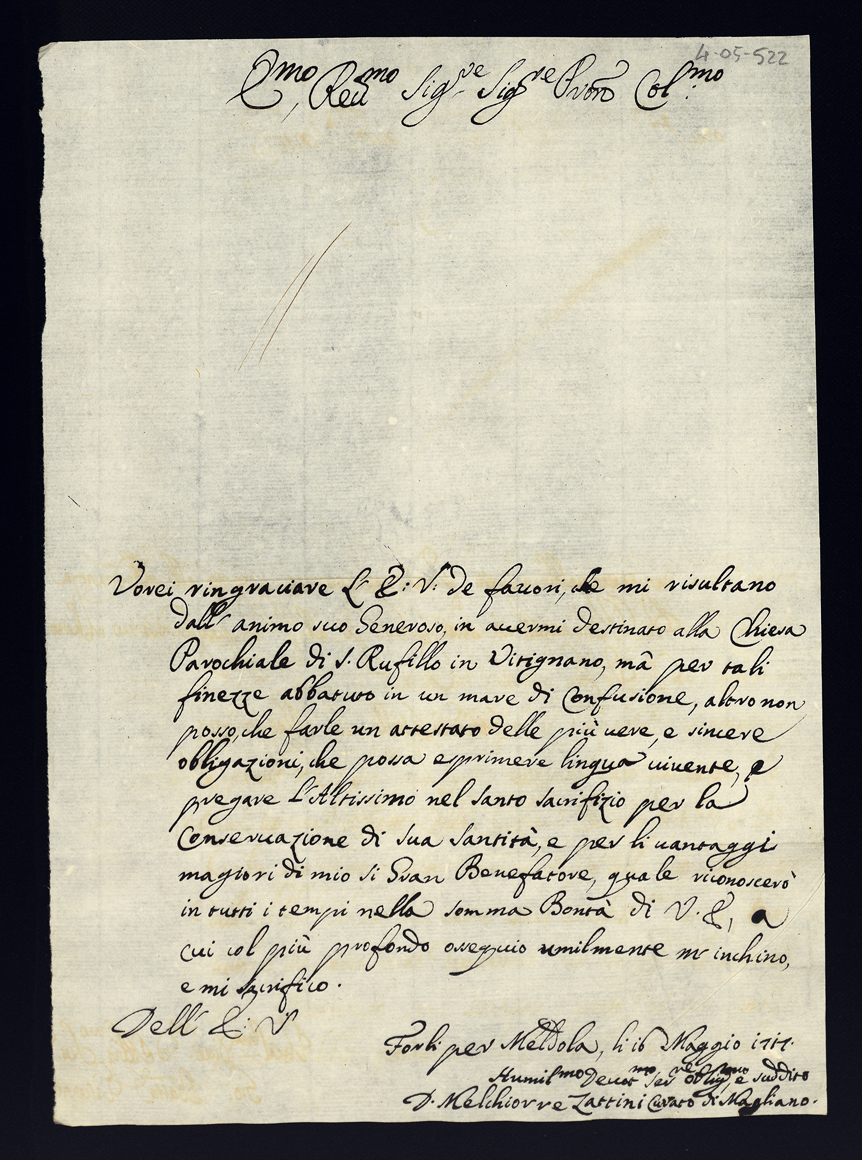 4-05-522
Emo, Reu^mo Sig^re Sig^re Pron Col:^mo
Vorei ringraciare L' E: V: de fauori, che mi risultano
dall' animo suo Generoso, in auermi destinato alla Chiesa
Parochiale di S. Rufillo in Vitignano, mà per tali
finezze abbatuto in un mare di Confusione, altro non
posso, che farle un attestato delle più uere, e sincere
obligazioni, che possa esprimere lingua uiuente, e
pregare L'Altissimo nel santo sacrifizio per la
Conseruazione di sua santità, e per li uantaggi
magiori di mio si Gran Benefatore, quale riconoscerò
in tutti i tempi nella somma Bontà di V. E, a
cui col più profondo ossequio umilmente m' inchino,
e mi sacrifico.
Dell' E: V
Forlì per Meldola, li 16 Maggio 1717.
Humil^mo Deuot^mo Ser^re oblig^mo e suddito
D. Melchiorre Zattini Curato di Magliano.